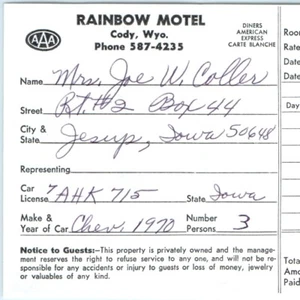 RAINBOW MOTEL
Cody, Wyo.
Phone 587-4235
AAA
DINERS
AMERICAN
EXPRESS
CARTE BLANCHE
Name Mrs. Joe W. Coller
Street Rt. #2 Box 44
City &
State Jesup, Iowa 50648
Representing
Car
License 7 AHK 715 State Iowa
Make &
Year of Car Chev. 1970 Number
Persons 3
Notice to Guests:—This property is privately owned and the manage-
ment reserves the right to refuse service to any one, and will not be re-
sponsible for any accidents or injury to guests or loss of money, jewelry
or valuables of any kind.
Roo
Rate
Tota
Amo
Paid